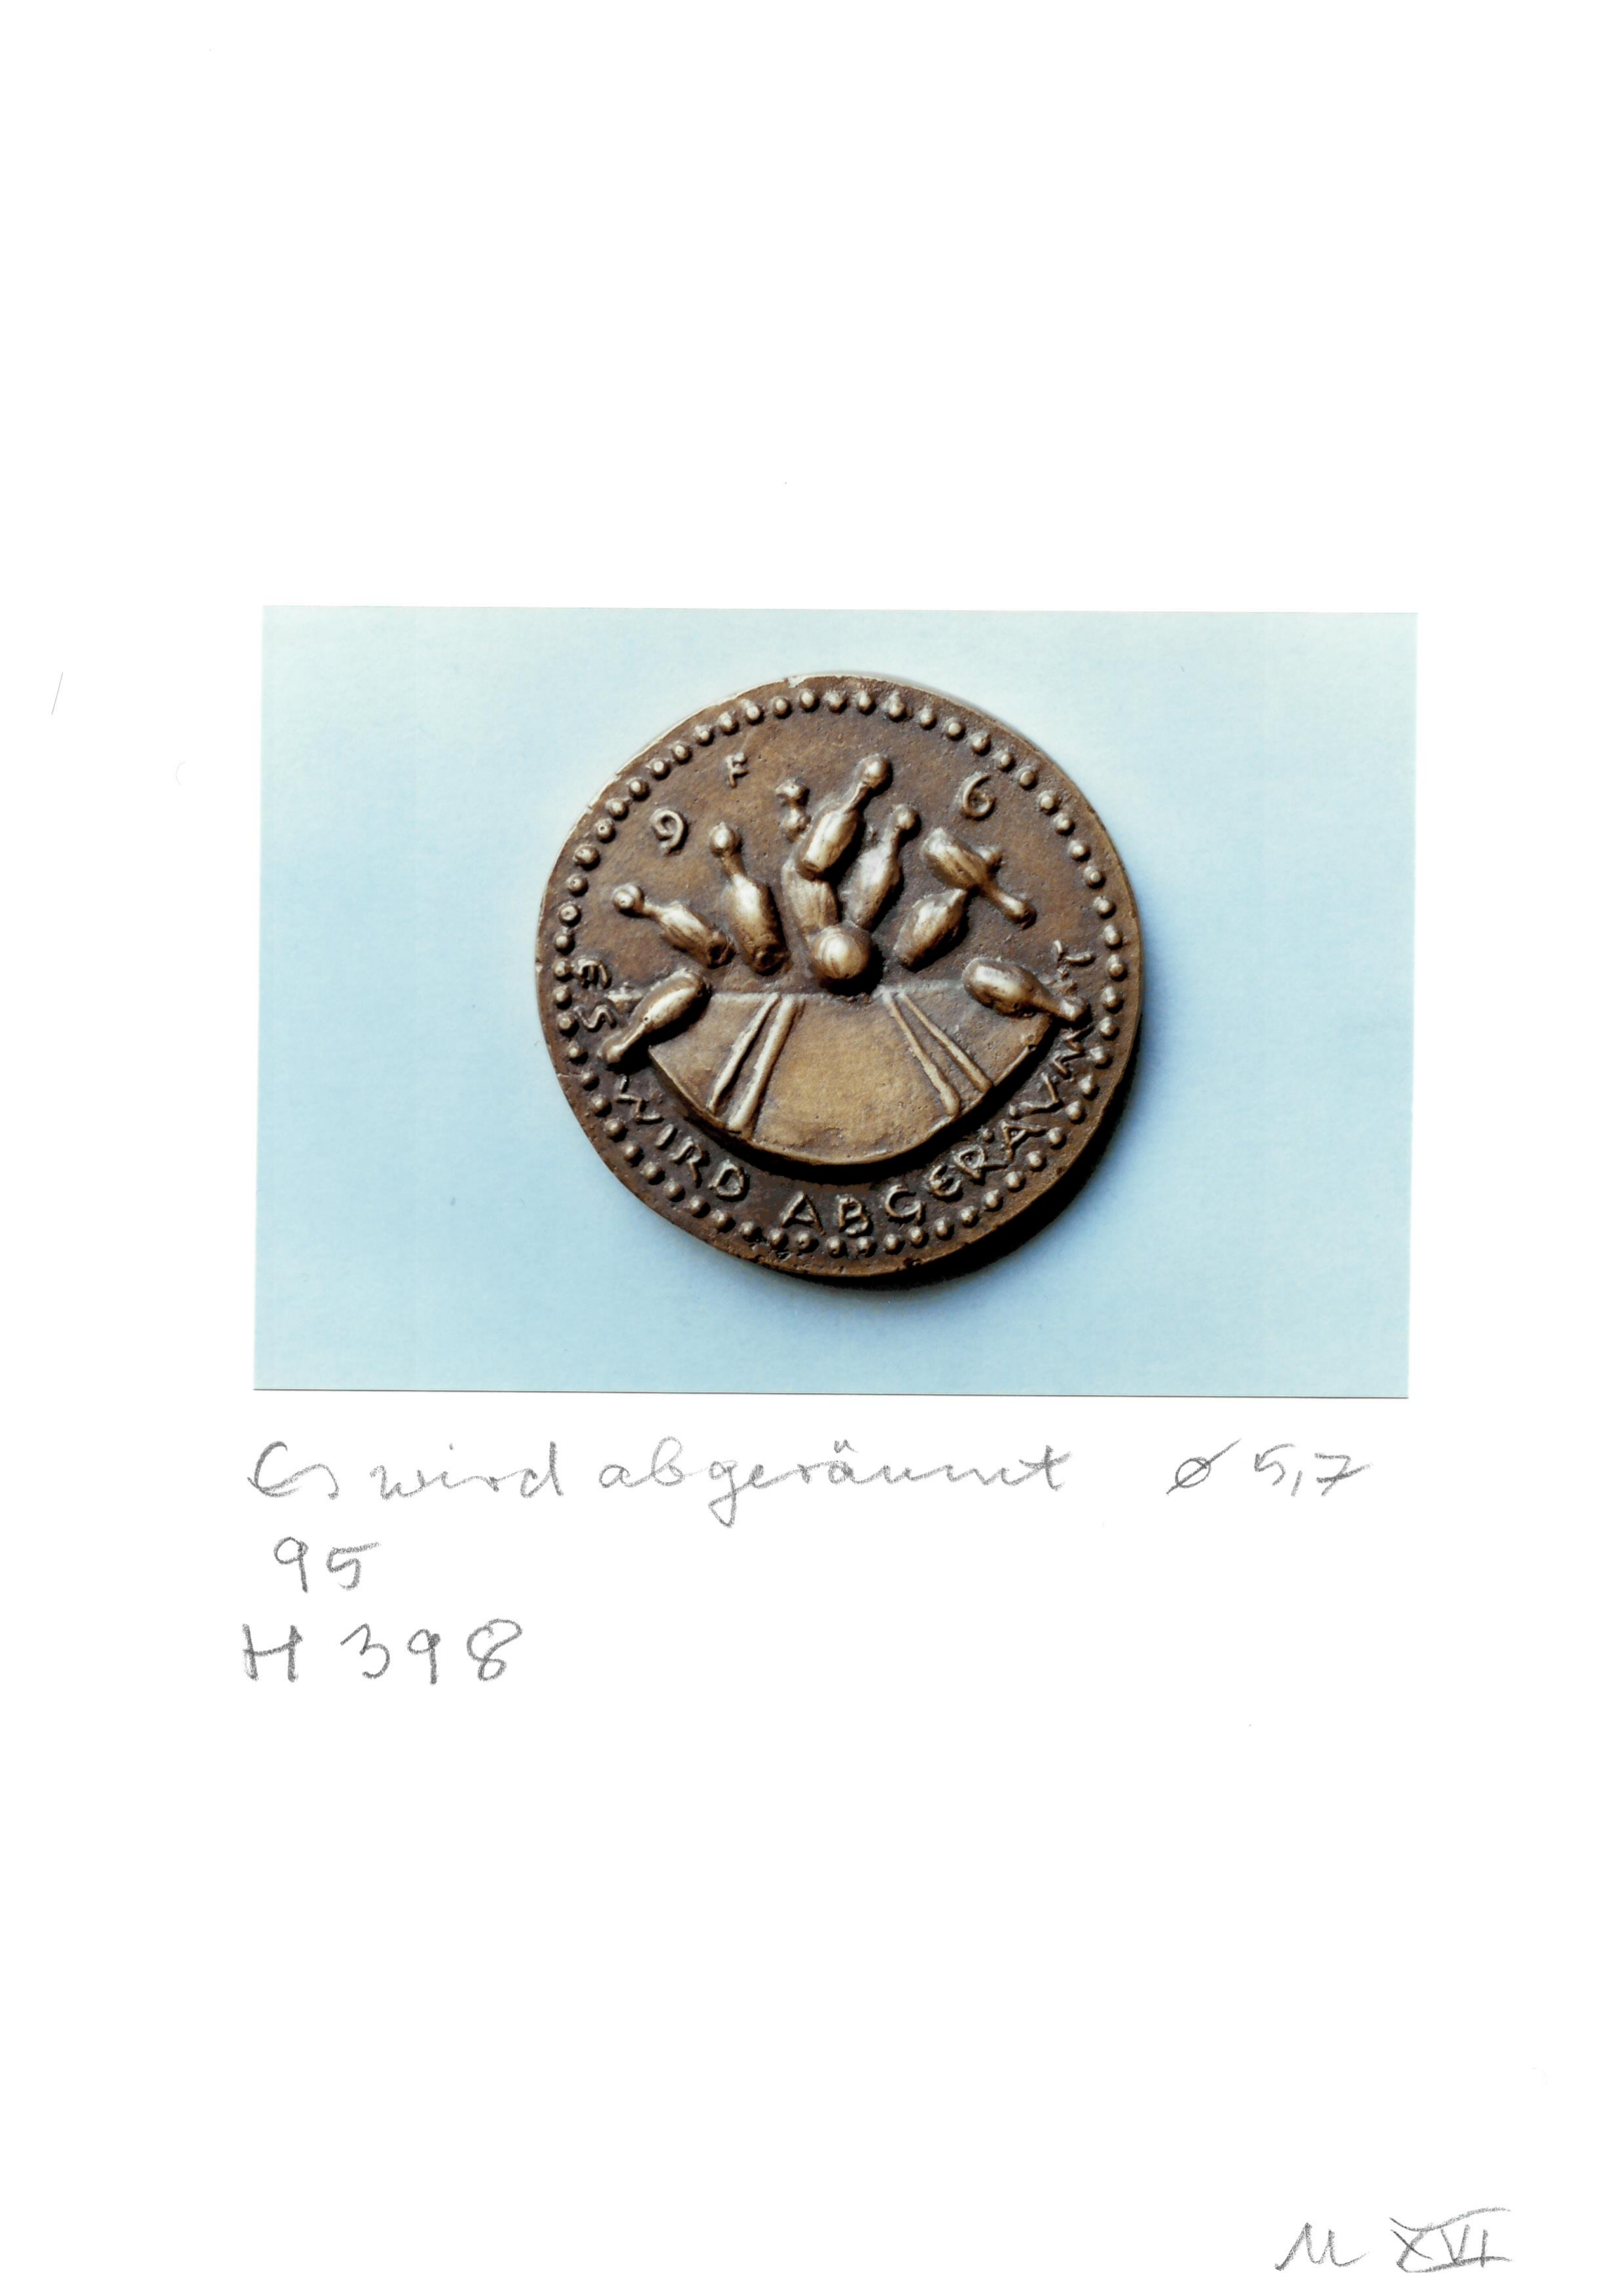 9 F 6
ES WIRD ABGERÄVMT
Es wird abgeräumt ø 5,7
95
H 398
M XVI